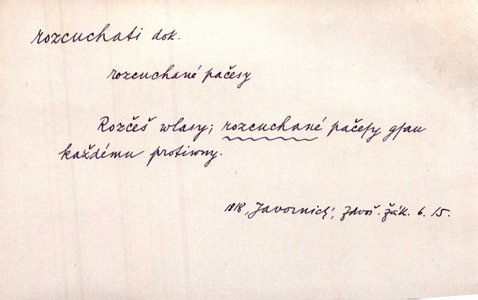 rozcuchati dok.
rozcuchané pačesy
Rozčeš wlasy; rozcuchané pačesy gsau
každému protiwny.
1818, Javornický, Zdvoř. žák. 6. 15.